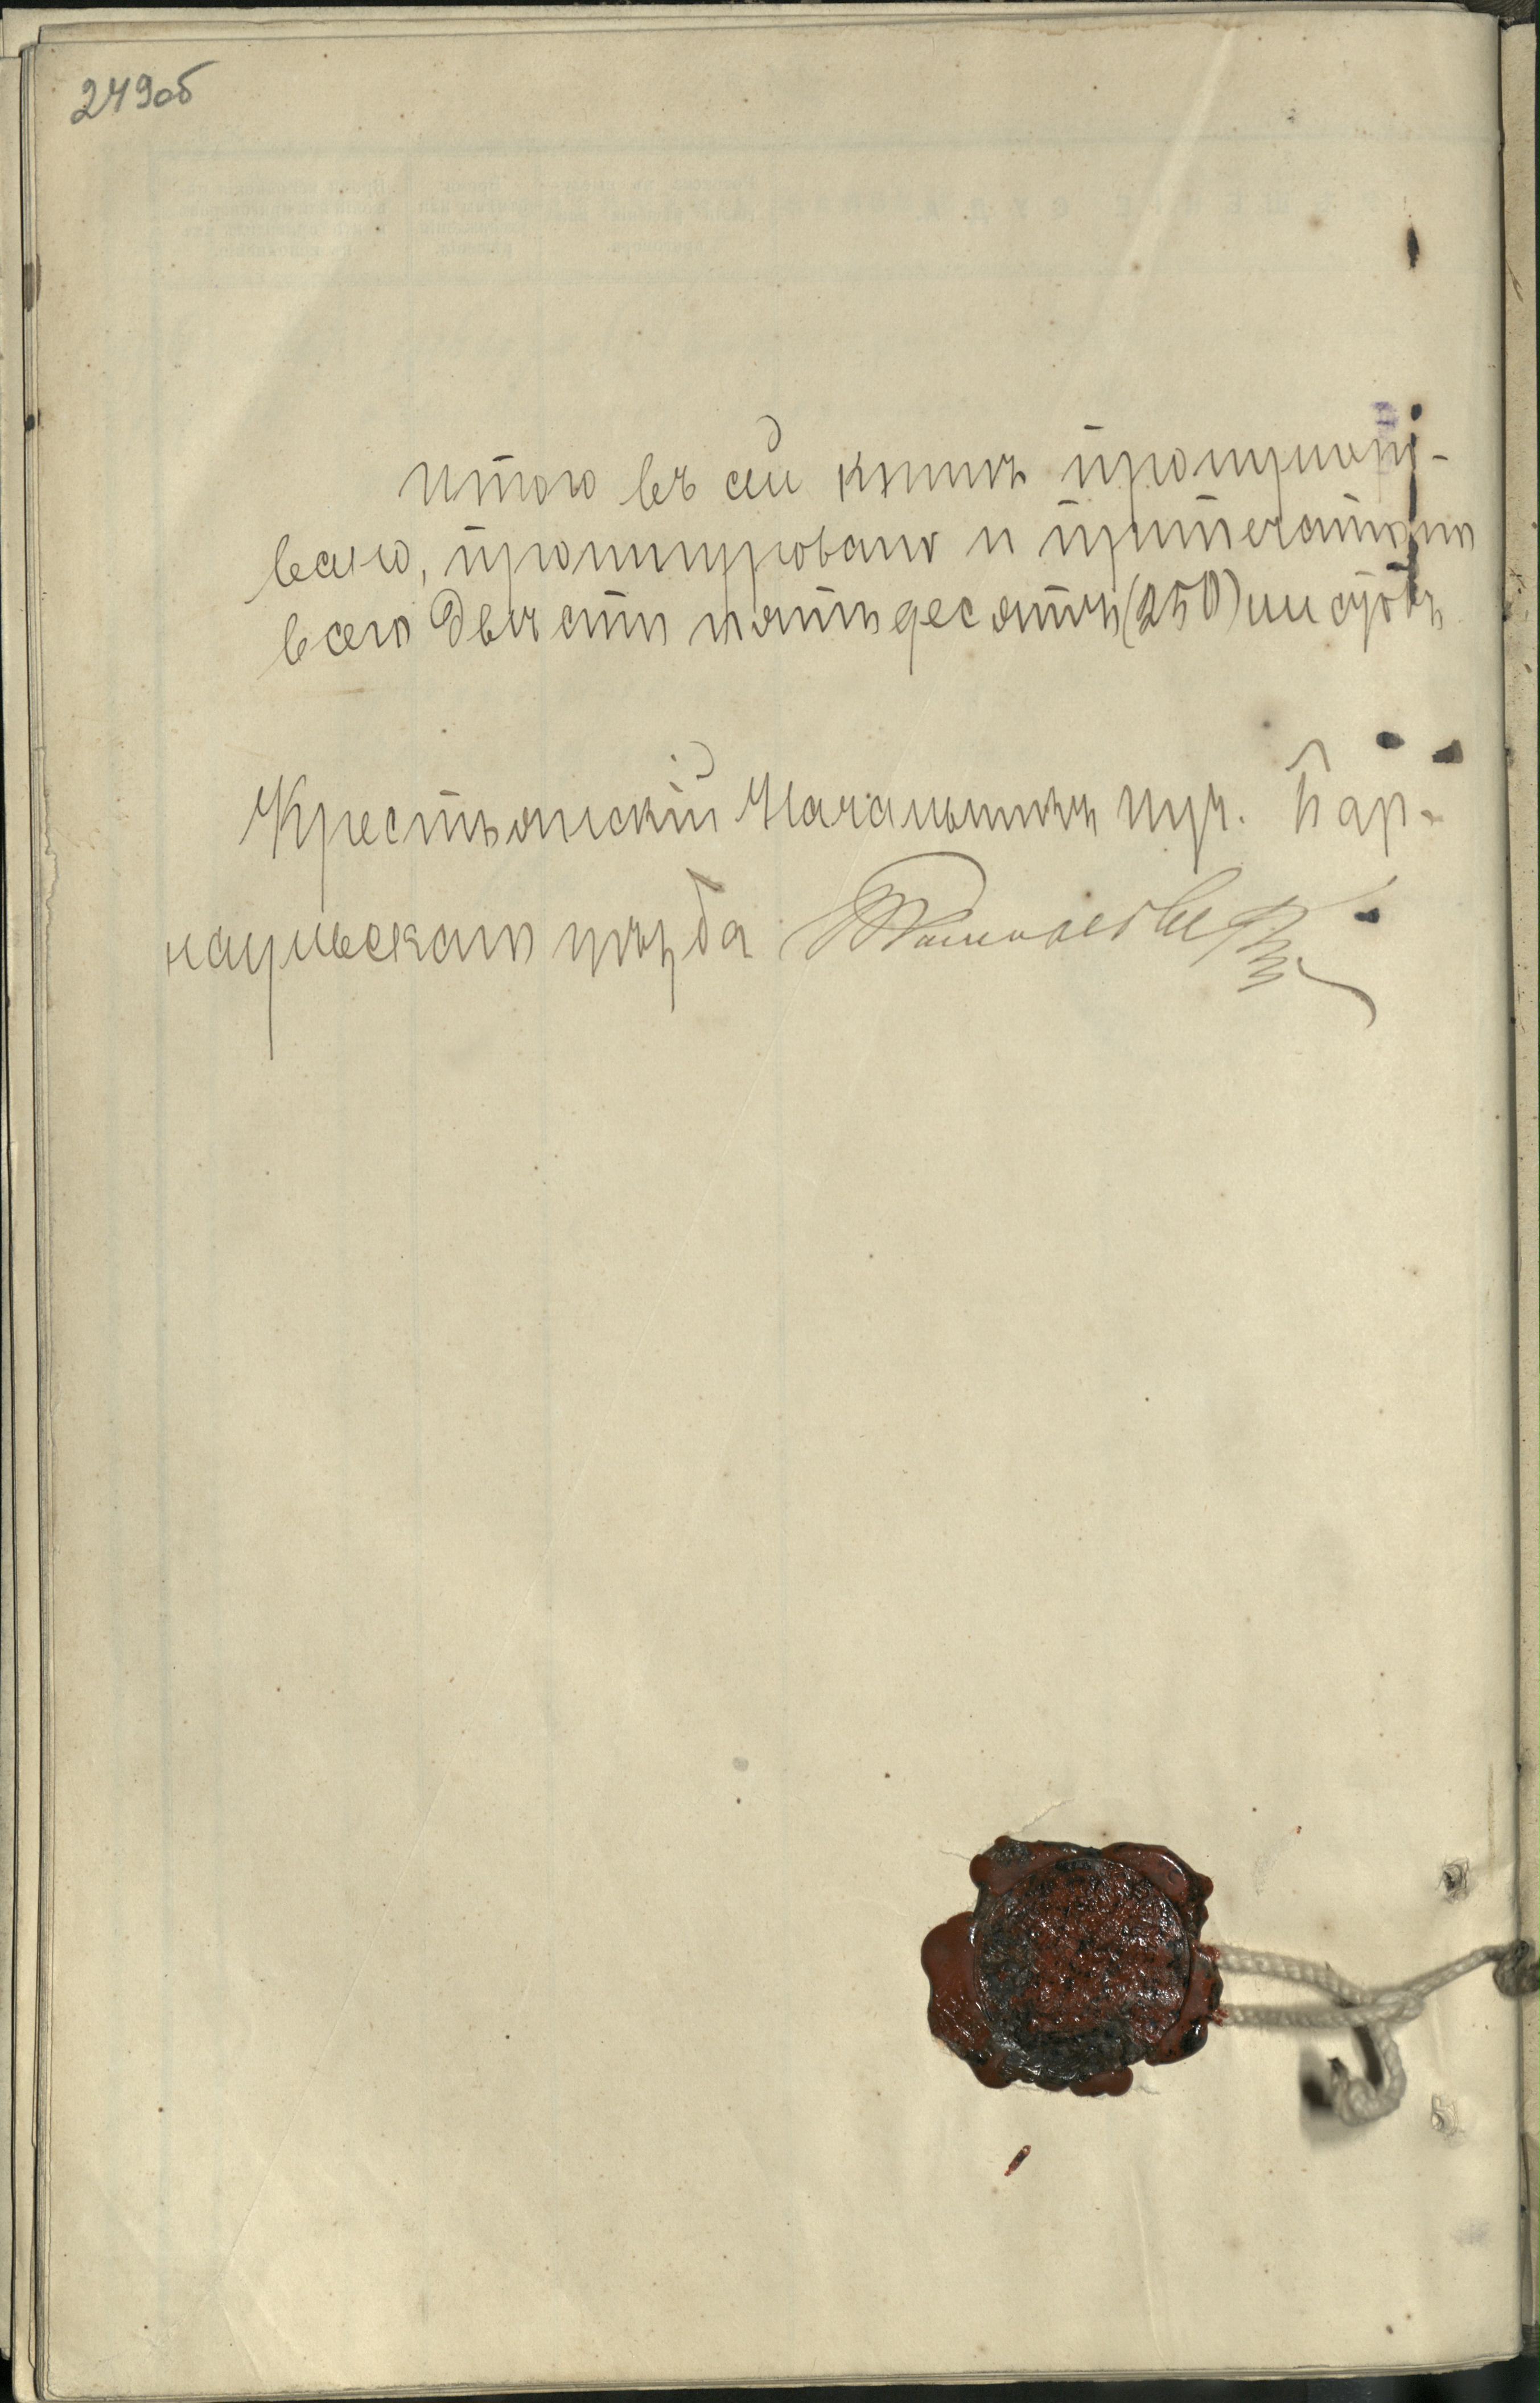 249об
Итого въ сей книгѣ пронумеро-
вано, прошнуровано и припечатано
всего двѣсти пятьдесятъ (250) листовъ
Крестьянскій Начальникъ уч. Бар-
наульскаго уѣзда